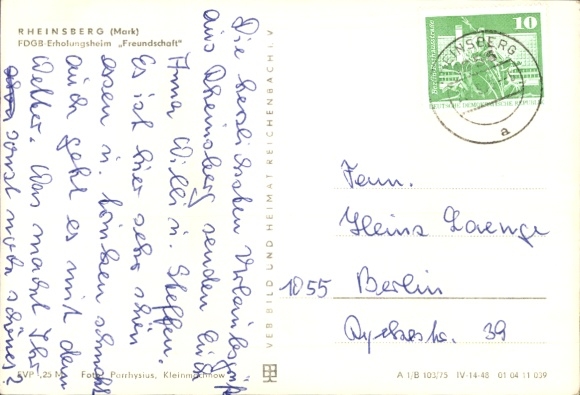 RHEINSBERG (Mark)
FDGB-Erholungsheim „Freundschaft"
Die herzlichsten Urlaubsgrüße
aus Rheinsberg senden Euch
Anna Willi u. Steffen.
Es ist hier sehr schön
essen u. trinken schmeckt
auch geht es mit dem
Wetter. Was macht Ihr
sonst noch schönes?
VEB BILD UND HEIMAT REICHENBACH i. V.
10
RHEINSBERG
DEUTSCHE DEMOKRATISCHE REPUBLIK
a
Fam.
Heinz Laenge
1055 Berlin
39
EVP -,25 M Foto: Parrhysius, Kleinmachnow
A 1/B 103/75 IV-14-48 01 04 11 039